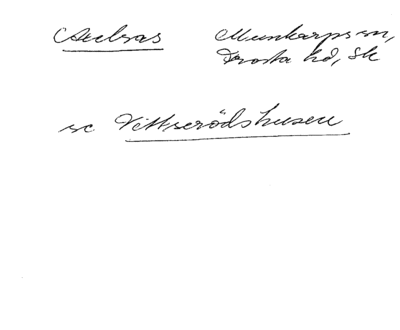 Munkarps sn,
Frosta hd, Sk
se Vittserödshusen